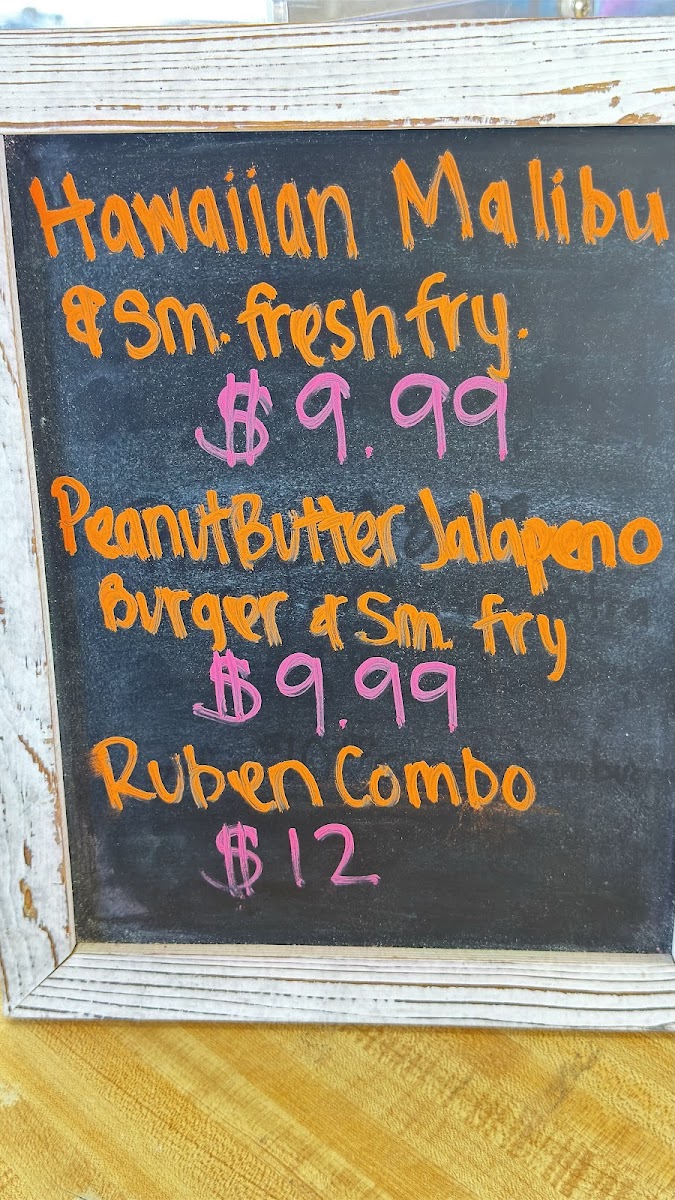 Hawaiian Malibu
& Sm. fresh fry.
$9.99
Peanut Butter Jalapeno
Burger & Sm. fry
$9.99
Ruben Combo
$12